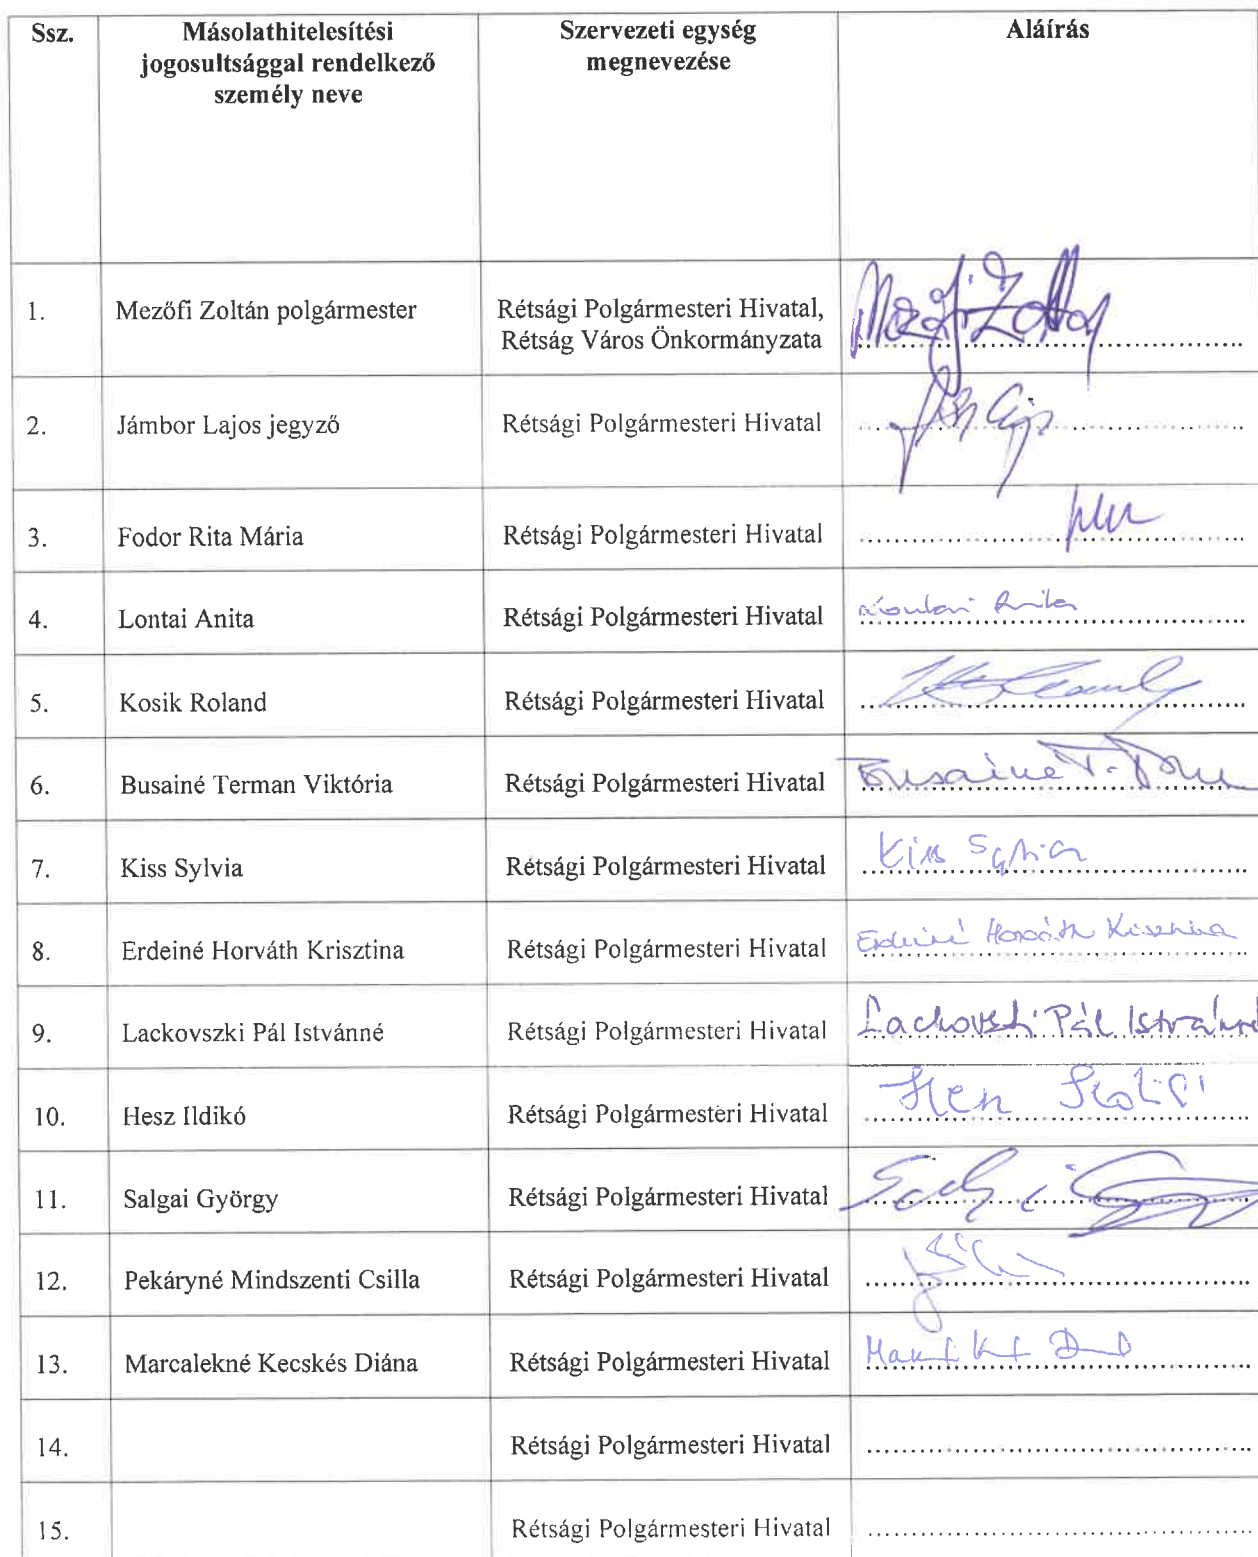 Ssz.
Másolathitelesítési
jogosultsággal rendelkező
személy neve
Szervezeti egység
megnevezése
Aláírás
1.
Mezőfi Zoltán polgármester
Rétsági Polgármesteri Hivatal,
Rétság Város Önkormányzata
Mezőfi Zoltán
2.
Jámbor Lajos jegyző
Rétsági Polgármesteri Hivatal
3.
Fodor Rita Mária
Rétsági Polgármesteri Hivatal
4.
Lontai Anita
Rétsági Polgármesteri Hivatal
Lontai Anita
5.
Kosik Roland
Rétsági Polgármesteri Hivatal
6.
Busainé Terman Viktória
Rétsági Polgármesteri Hivatal
Busainé T.
7.
Kiss Sylvia
Rétsági Polgármesteri Hivatal
Kiss Sylvia
8.
Erdeiné Horváth Krisztina
Rétsági Polgármesteri Hivatal
Erdeiné Horváth Krisztina
9.
Lackovszki Pál Istvánné
Rétsági Polgármesteri Hivatal
Lackovszki Pál Istvánné
10.
Hesz Ildikó
Rétsági Polgármesteri Hivatal
Hesz Ildikó
11.
Salgai György
Rétsági Polgármesteri Hivatal
12.
Pekáryné Mindszenti Csilla
Rétsági Polgármesteri Hivatal
13.
Marcalekné Kecskés Diána
Rétsági Polgármesteri Hivatal
14.
Rétsági Polgármesteri Hivatal
15.
Rétsági Polgármesteri Hivatal